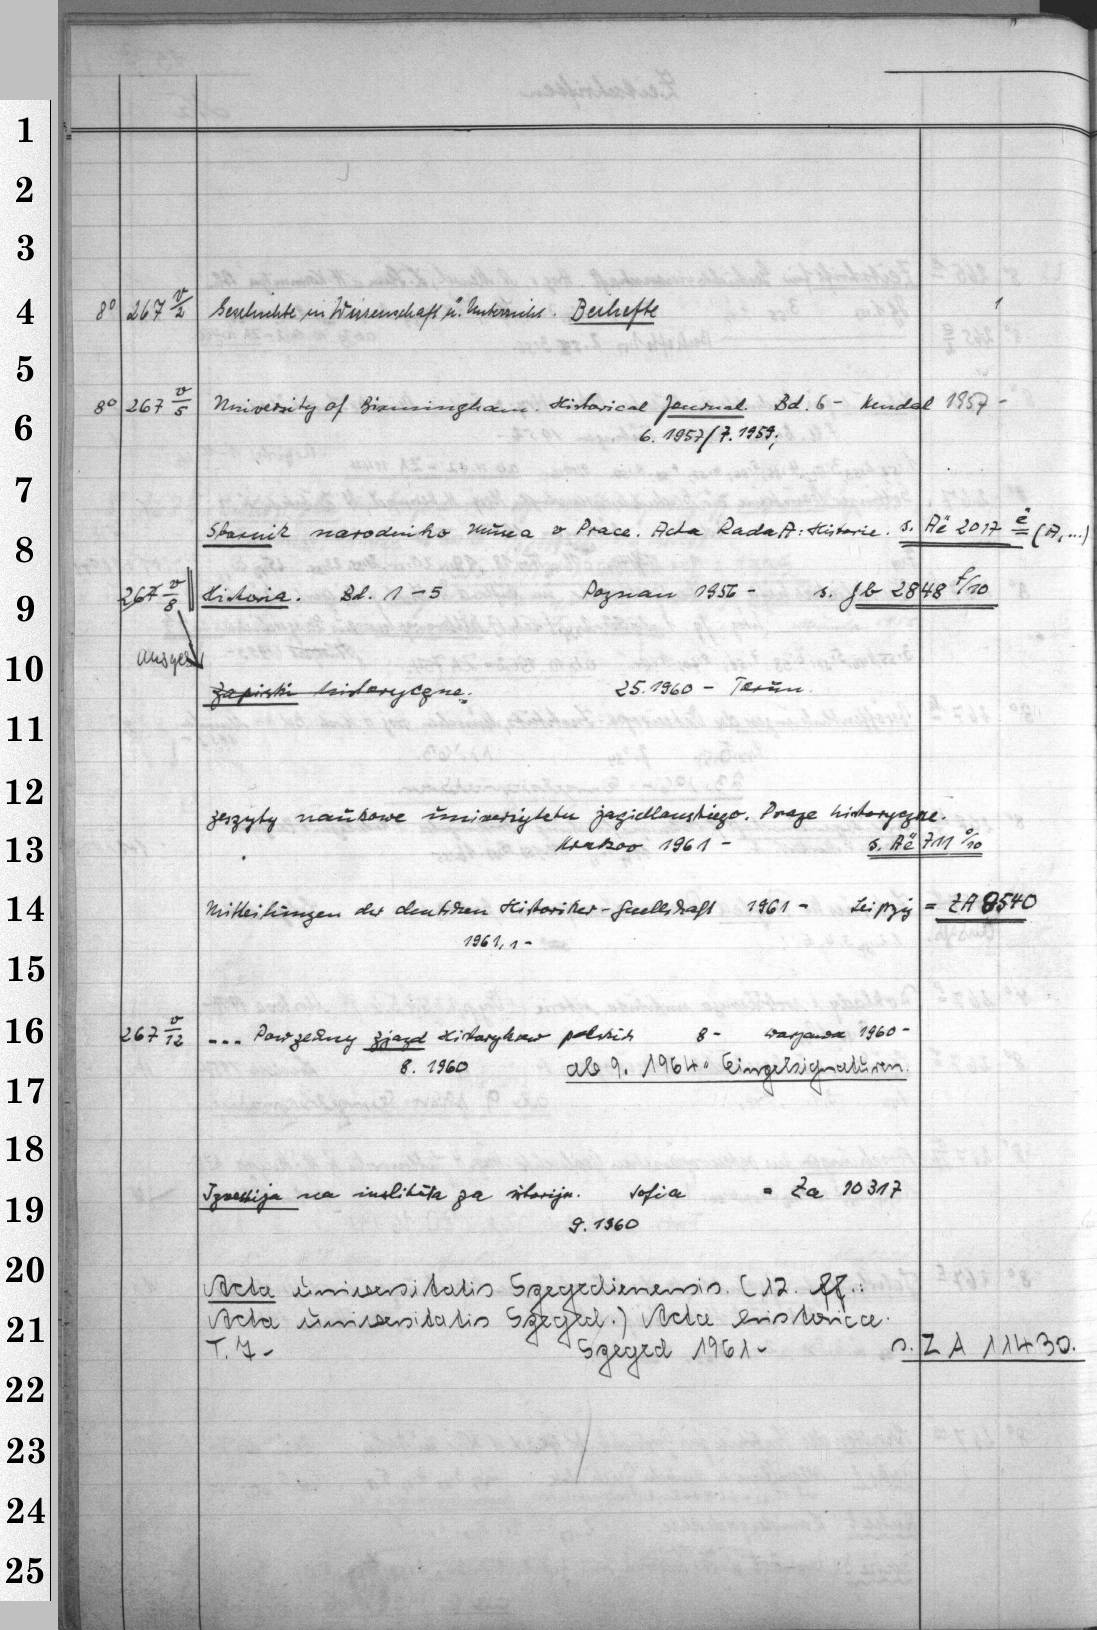 1
2
3
4
8° 267 v/2 Geschichte in Wissenschaft u. Unterricht. Beihefte 1
5
8° 267 v/5 University of Birmingham. Historical Journal. Bd. 6 - Kendal 1957 -
6
6. 1957/7. 1959;
7
Sbornik narodniho Musea v Praze. Acta Rada A: Historie. s. Aë 2017 ë (A, ...)
8
9
267 v/8 Historia. Bd. 1-5 Poznan 1956 - s. Gb 2848 f/10
10
ausges
Zapiski historyczne. 25. 1960 - Torun.
11
12
Zeszyty naukowe uniwersytetu jagiellonskiego. Prace historyczne.
13
Krakow 1961 - s. Aë 711 o/10
14
Mitteilungen der deutschen Historiker-Gesellschaft 1961 - Leipzig = ZA 8540
1961, 1 -
15
16
267 v/12 ... Powszechny zjazd historykow polskich 8 - Warszawa 1960 -
8. 1960 ab 9. 1964 = Einzelsignaturen.
17
18
Izvestija na instituta za istorija. Sofia = Za 10317
19
9. 1960
20
Acta universitatis Szegediensis. (12. ff.:
21
Acta universitatis Szeged.) Acta historica.
T. 7 - Szeged 1961 - s. ZA 11430.
22
23
24
25